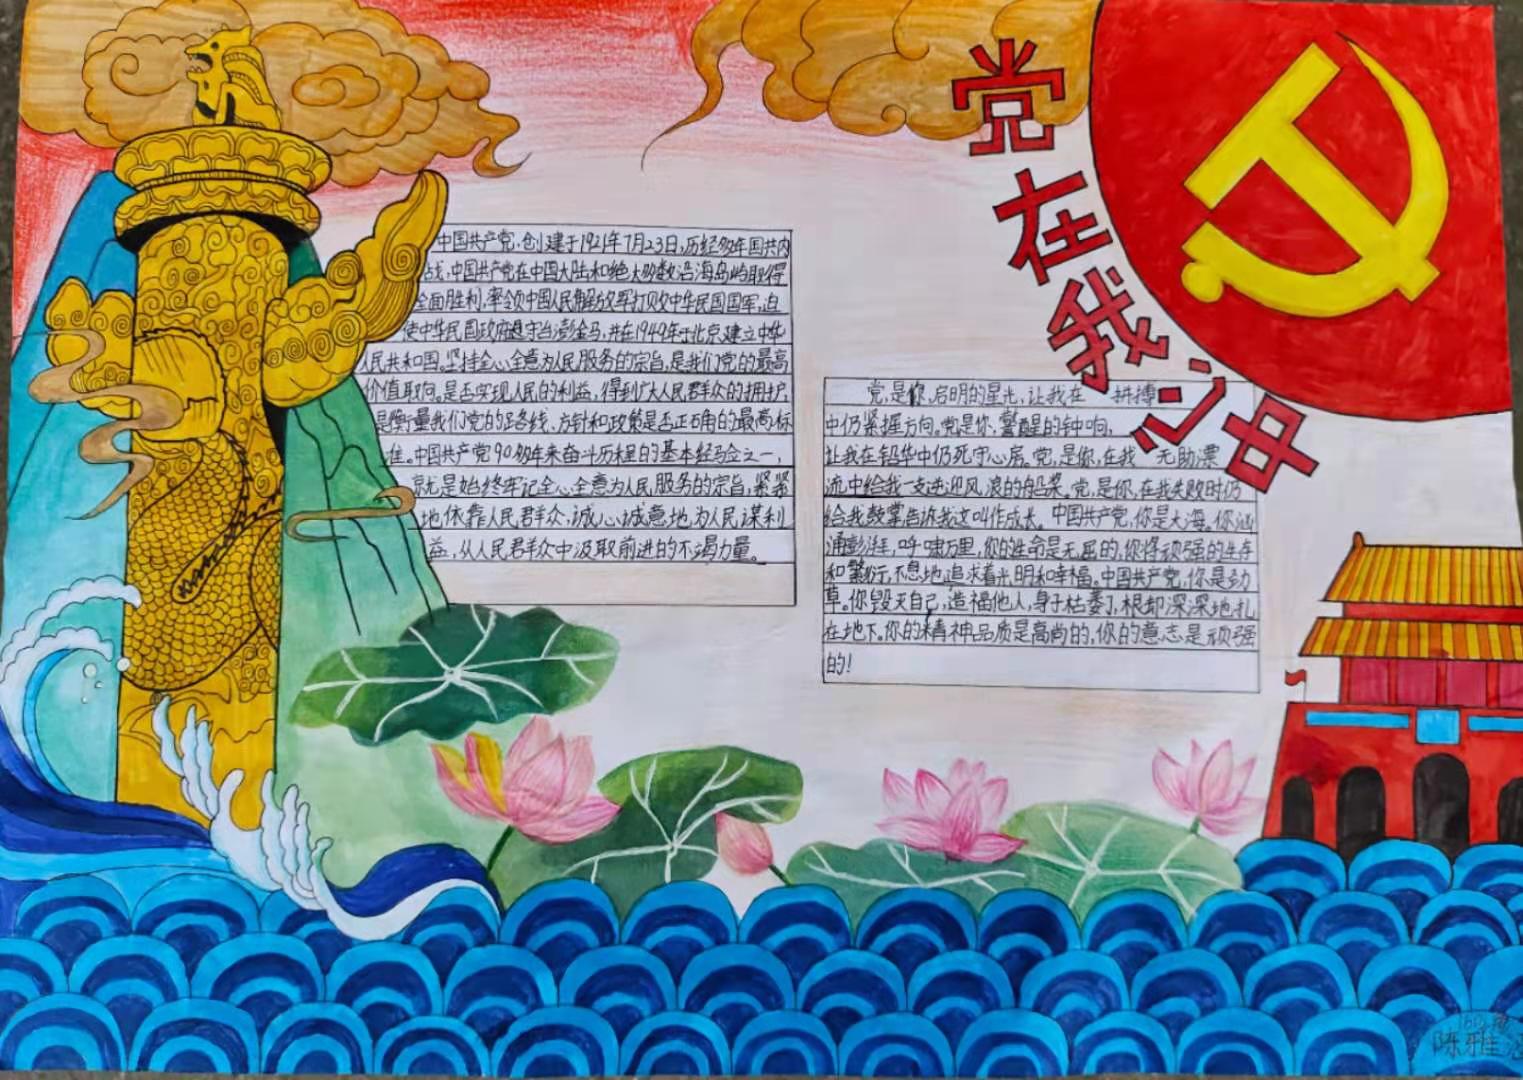 党在我心中
中国共产党,创建于1921年7月23日,历经多年国共内
战,中国共产党在中国大陆和绝大多数沿海岛屿取得
全面胜利,率领中国人民解放军打败中华民国国军,迫
使中华民国政府退守台澎金马,并在1949年于北京建立中华
人民共和国。坚持全心全意为人民服务的宗旨,是我们党的最高
价值取向。是否实现人民的利益,得到广大人民群众的拥护,
是衡量我们党的路线、方针和政策是否正确的最高标
准。中国共产党90多年来奋斗历程的基本经验之一,
就是始终牢记全心全意为人民服务的宗旨,紧紧
地依靠人民群众,诚心诚意地为人民谋利
益,从人民群众中汲取前进的不竭力量。
党,是你,启明的星光,让我在 拼搏
中仍紧握方向。党是你,警醒的钟响,
让我在铅华中仍死守心房。党,是你,在我 无助漂
流中给我一支逆迎风浪的船桨。党,是你,在我失败时仍
给我鼓掌告诉我这叫作成长。中国共产党,你是大海。你汹
涌澎湃,呼啸万里,你的生命是无屈的,你将顽强的生存
和繁衍,不息地追求着光明和幸福。中国共产党,你是劲
草。你毁灭自己,造福他人,身子枯萎了,根却深深地扎
在地下。你的精神品质是高尚的,你的意志是顽强
的!
陈雅